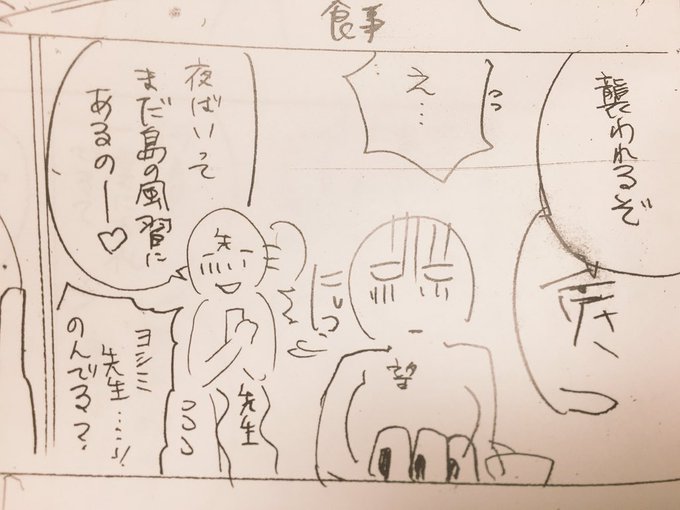 食事
襲われるぞ
え…
夜ばいって
まだ島の風習に
あるのー♡
ヨシミ
先生……!!
のんでる?
先生
望